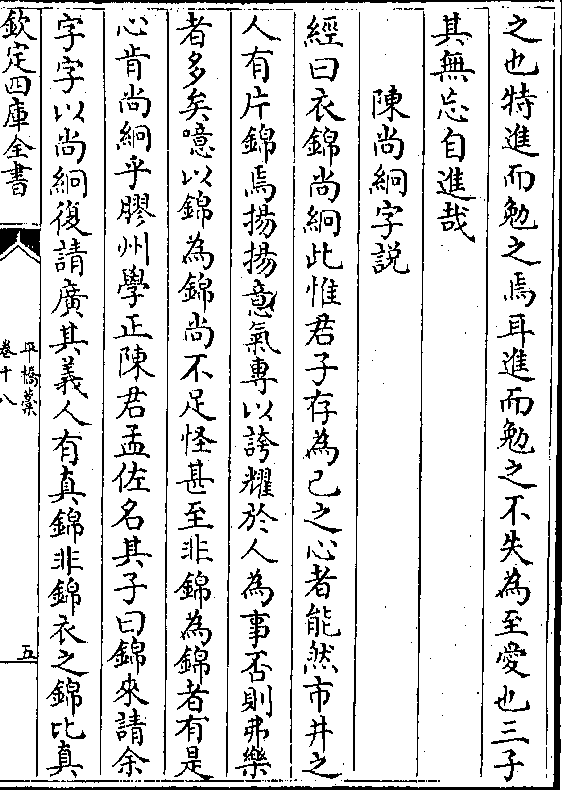 之也特進而勉之焉耳進而勉之不失為至愛也三子
其無忘自進哉
陳尚絅字説
經曰衣錦尚絅此惟君子存為己之心者能然市井之
人有片錦焉揚揚意氣專以誇耀於人為事否則弗樂
者多矣噫以錦為錦尚不足怪甚至非錦為錦者有是
心肯尚絅乎膠州學正陳君孟佐名其子曰錦來請余
字字以尚絅復請廣其義人有真錦非錦衣之錦比真
欽定四庫全書
平橋藁
卷十八
五